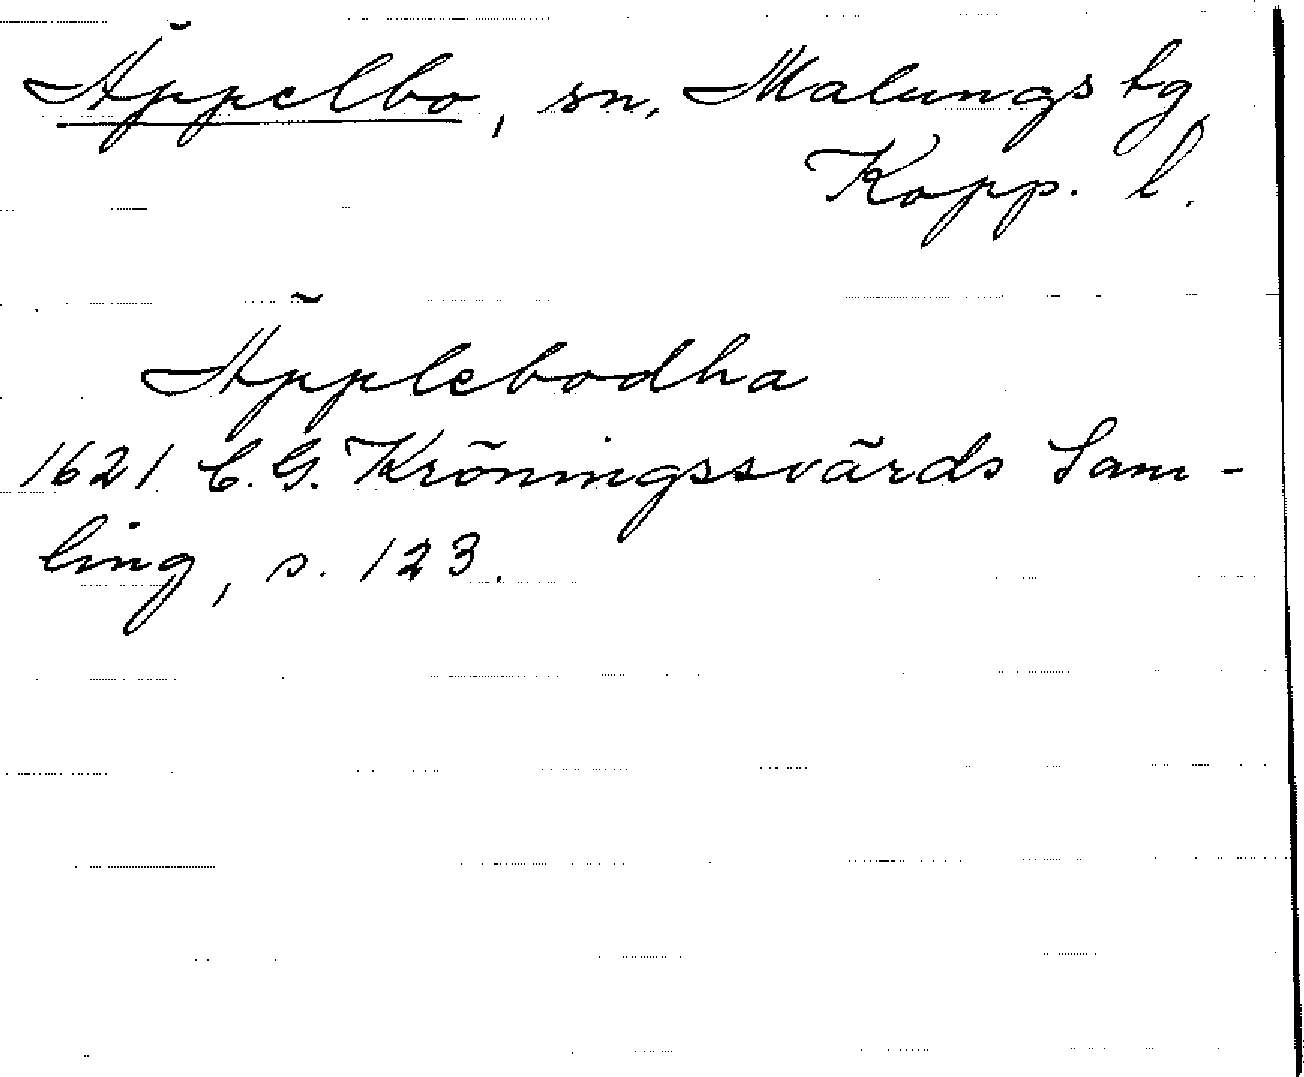 Äppelbo, sn, Malungs tg
Kopp. l.
Äpplebodha
1621 C.G. Kröningssvärds Sam-
ling, s. 123.